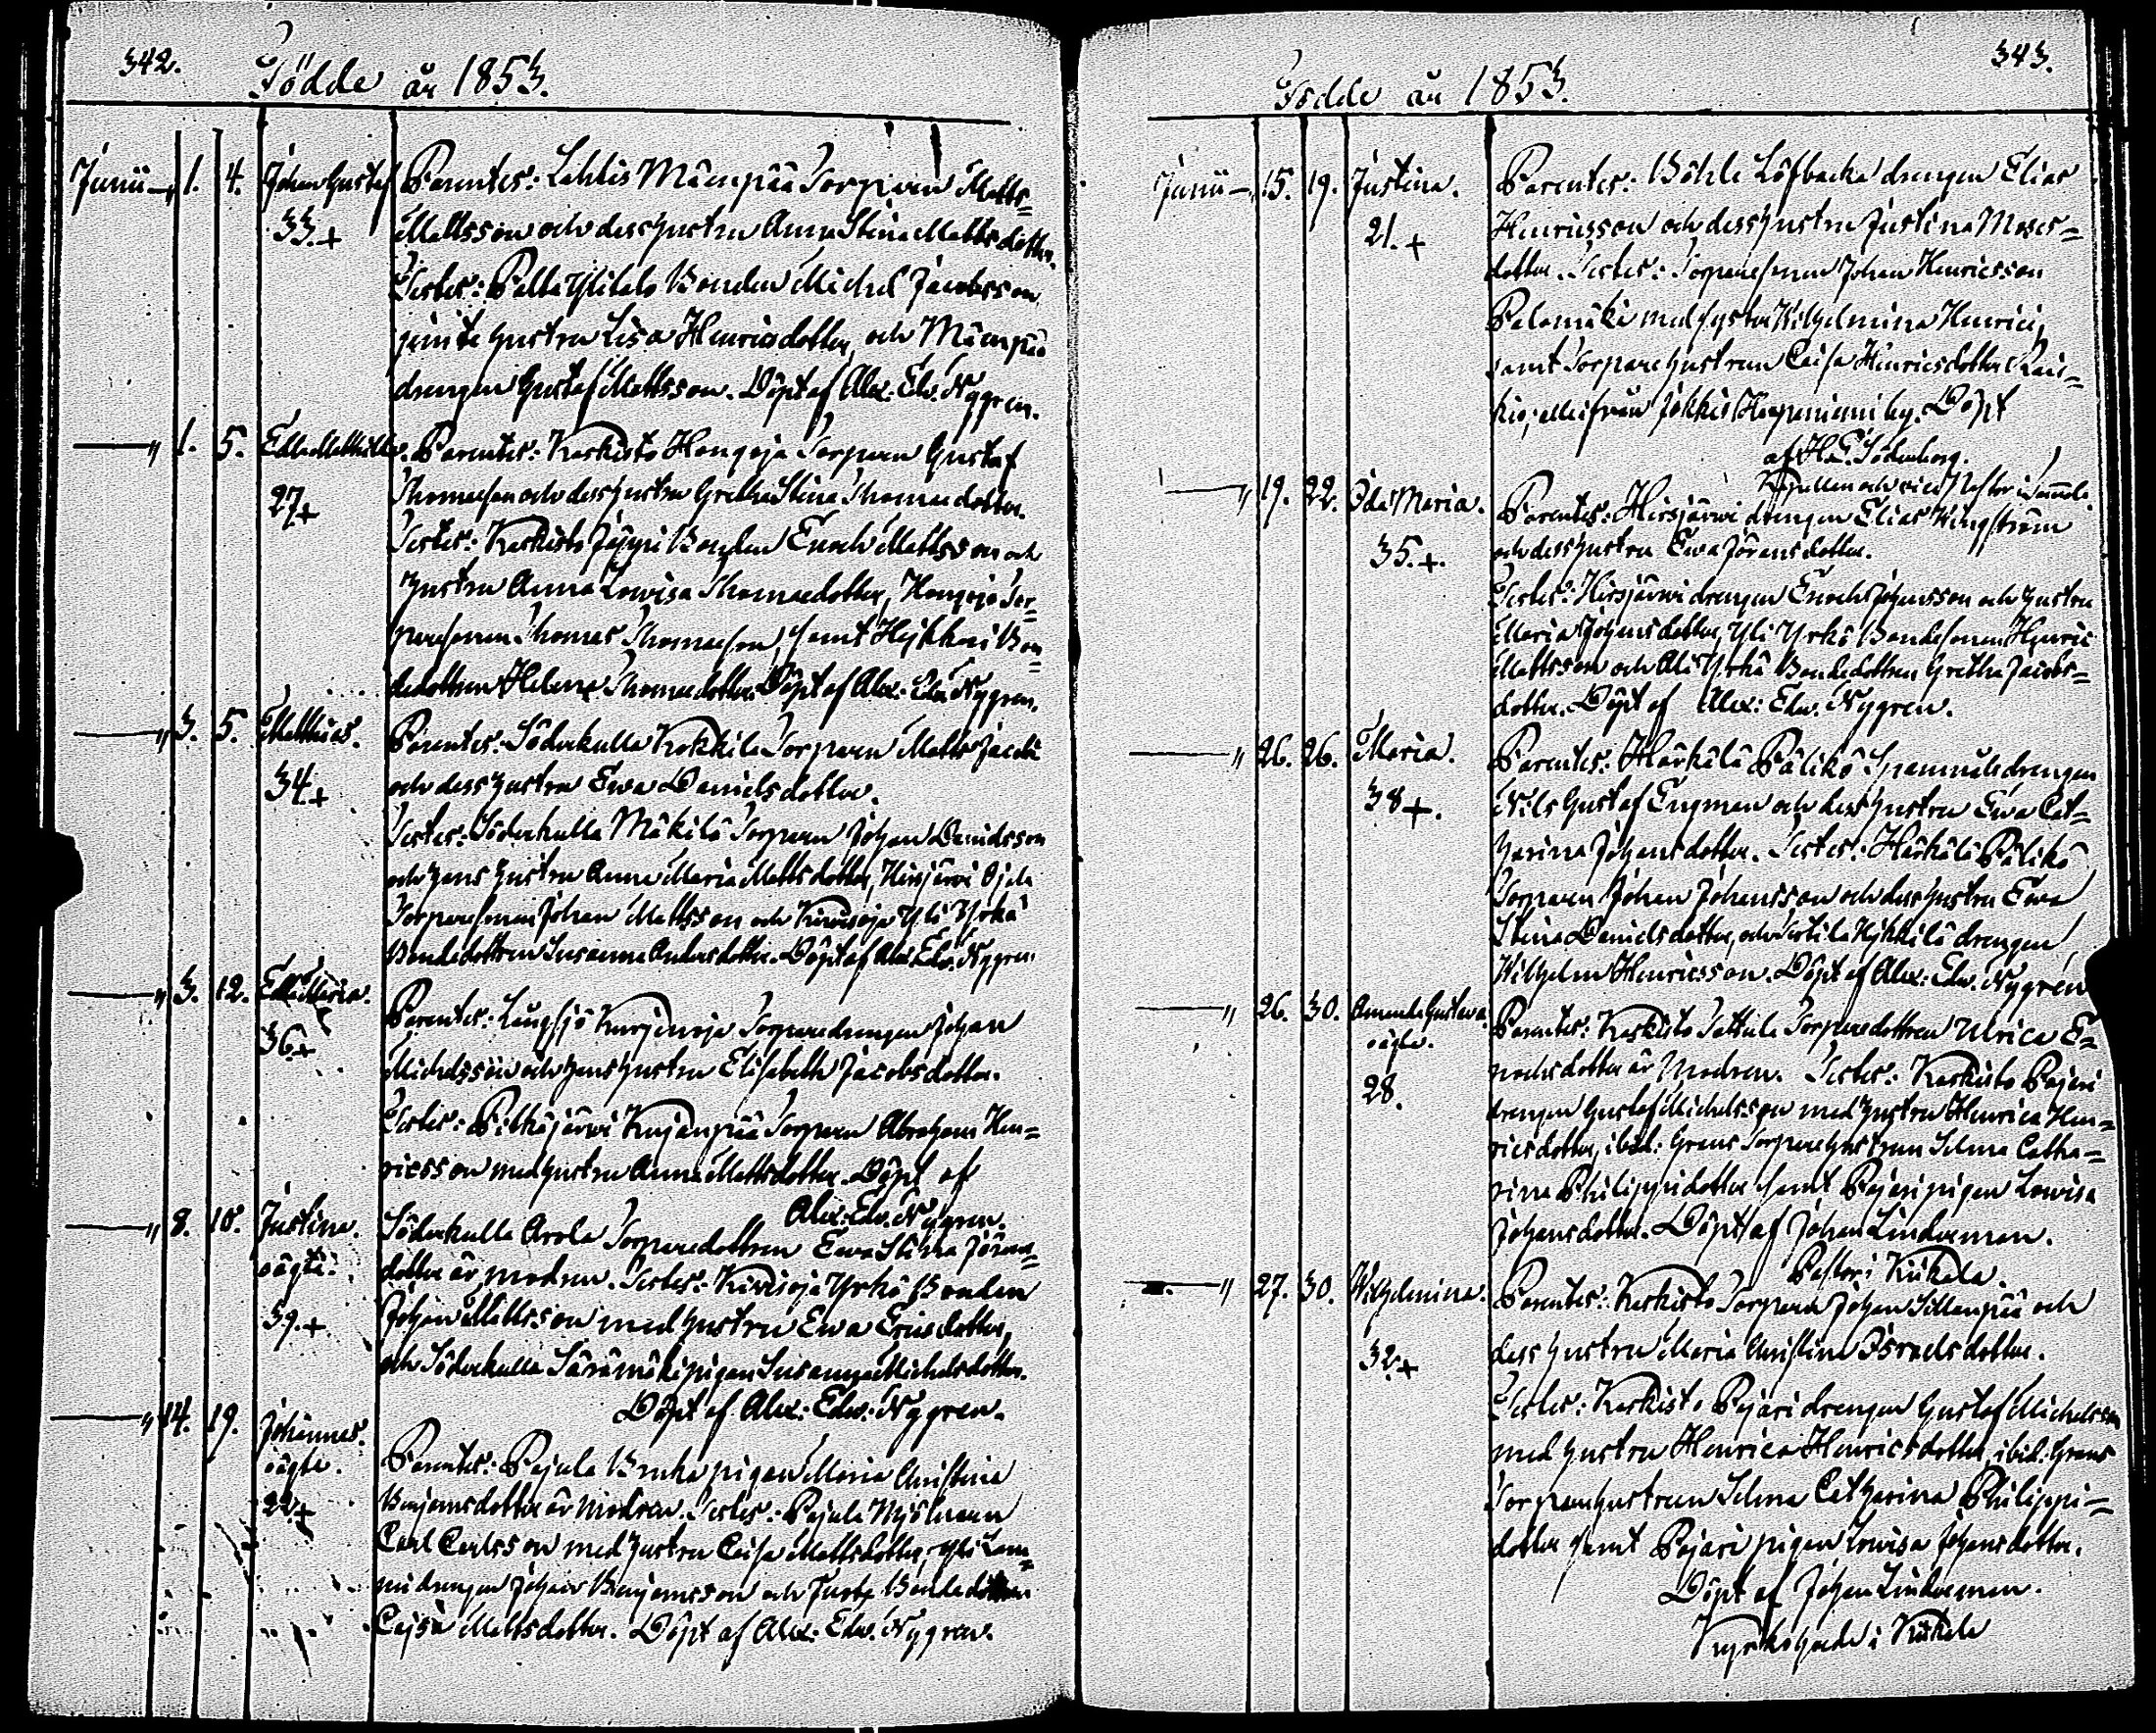 342.
Födde år 1853.
Junii 1. 4. Johan Gustaf Parentes: Lahtis Mäenpää Torparen Matts
33.+ Mattsson och dess hustru Anna Stina Mattsdotter.
Testes: Palta Ylitalo Bonden Michel Jacobsson
jemte hustru Lisa Henricsdotter, och Mäenpää
drengen Gustaf Mattsson. Döpt af Alex: Edv. Nygren.
1. 5. Edla Mathilda. Parentes: Karkisto Hongoja Torparen Gustaf
27+ Thomasson och dess hustru Gretha Stina Thomasdotter.
Testes: Karkisto Jäppi Bonden Enoch Mattsson och
hustru Anna Lowisa Thomasdotter, Hongoja Tor=
paresonen Thomas Thomasson, samt Heikkari Bon=
dedottren Helena Thomasdotter. Döpt af Alex: Edv. Nygren.
3. 5. Matthias. Parentes: Söderkulla Kokkila Torparen Matts Jacobs
34.+ och dess hustru Ewa Danielsdotter.
Testes: Söderkulla Mäkilä Torparen Johan Davidsson
och hans hustru Anna Maria Mattsdotter, Hirsjärvi Ojala
Torparesonen Johan Mattsson och Kivisoja Yli Yrkö
Bondedottren Susanna Andersdotter. Döpt af Alex. Edv. Nygren.
3. 12. Edla Maria. Parentes: Långsjö Kurjenoja Torparedrengen Johan
36+ Michelsson och hans hustru Elisabeth Jacobsdotter.
Testes: Pitkäjärwi Kujanpää Torparen Abraham Hen=
ricsson med hustru Anna Mattsdotter. Döpt af
Alex: Edv. Nygren.
8. 10. Justina. Söderkulla Arola Torparedottren Ewa Stina Jörans=
oägta. dotter är modren. Testes: Kivisoja Yrkö Bonden
39.+ Johan Mattsson med hustru Ewa Ericsdotter,
och Söderkulla Säämäki pigan Susanna Michelsdotter.
Döpt af Alex: Edv: Nygren.
14. 19. Johannes. Parentes: Pajula pigan Maria Christina
oägta. Benjamsdotter är modren. Testes: Pajula Mjölnaren
22+ Carl Carlsson med hustru Caisa Mattsdotter, Yli Lem=
mi drengen Johan Benjamsson och Bondedottren
Cajsa Mattsdotter. Döpt af Alex: Edv. Nygren.
343.
Födde år 1853.
Junii 15. 19. Justina. Parentes: Böhle Löfbacka drengen Elias
21.+ Henricsson och dess hustru Justina Moses=
dotter. Testes: Torparesonen Johan Henricsson
Palomäki med syster Wilhelmina Henrici,
samt Torparehustrun Caisa Henricsdotter Rais=
kio, alla ifrån Jokkis Haapaniemi by. Döpt
af H. E. Söderborg.
Kapellan och vice Pastor i
19. 22. Ida Maria. Parentes: Hirsjärwi drengen Elias Wingström
35.+. och dess hustru Ewa Jöransdotter.
Testes: Hirsjärwi drengen Enoch Johansson och hustru
Maria Johansdotter, Yli Yrkö Bondesonen Henric
Mattsson och Ali Yrkö Bondedottren Gretha Jacobs=
dotter. Döpt af Alex: Edw. Nygren.
26. 26. Maria. Parentes: Härkälä Pälikö Spannmålsdrengen
38+. Nils Gustaf Engman och dess hustru Ewa Cat=
harina Johansdotter. Testes: Härkälä Pälikö
Torparen Johan Johansson och dess hustru Ewa
Stina Danielsdotter, och Sertila Hykkilä drengen
Wilhelm Henricsson. Döpt af Alex: Edw. Nygren
26. 30. Amanda Gustava. Parentes: Karkisto Tattula Torparedottren Ulrica E=
oägta. nochsdotter är Modren. Testes: Karkisto Pajari
28. drengen Gustaf Michelsson med hustru Henrica Hen=
ricsdotter, ibid: Grans Torparehustrun Selma Catha=
rina Philippidotter samt Pajari pigan Lowisa
Johansdotter. Döpt af Johan Lindeman.
Pastor i Kiikala.
27. 30. Wilhelmina. Parentes: Karkisto Torparen Johan Sillanpää och
32+ dess hustru Maria Christina Israelsdotter.
Testes: Karkisto Pajari drengen Gustaf Michelsson
med hustru Henrica Henricsdotter, ibid: Grans
Torparehustrun Selma Catharina Philippi=
dotter samt Pajari pigan Lowisa Johansdotter.
Döpt af Johan Lindeman.
Kyrkoherde i Kiikala